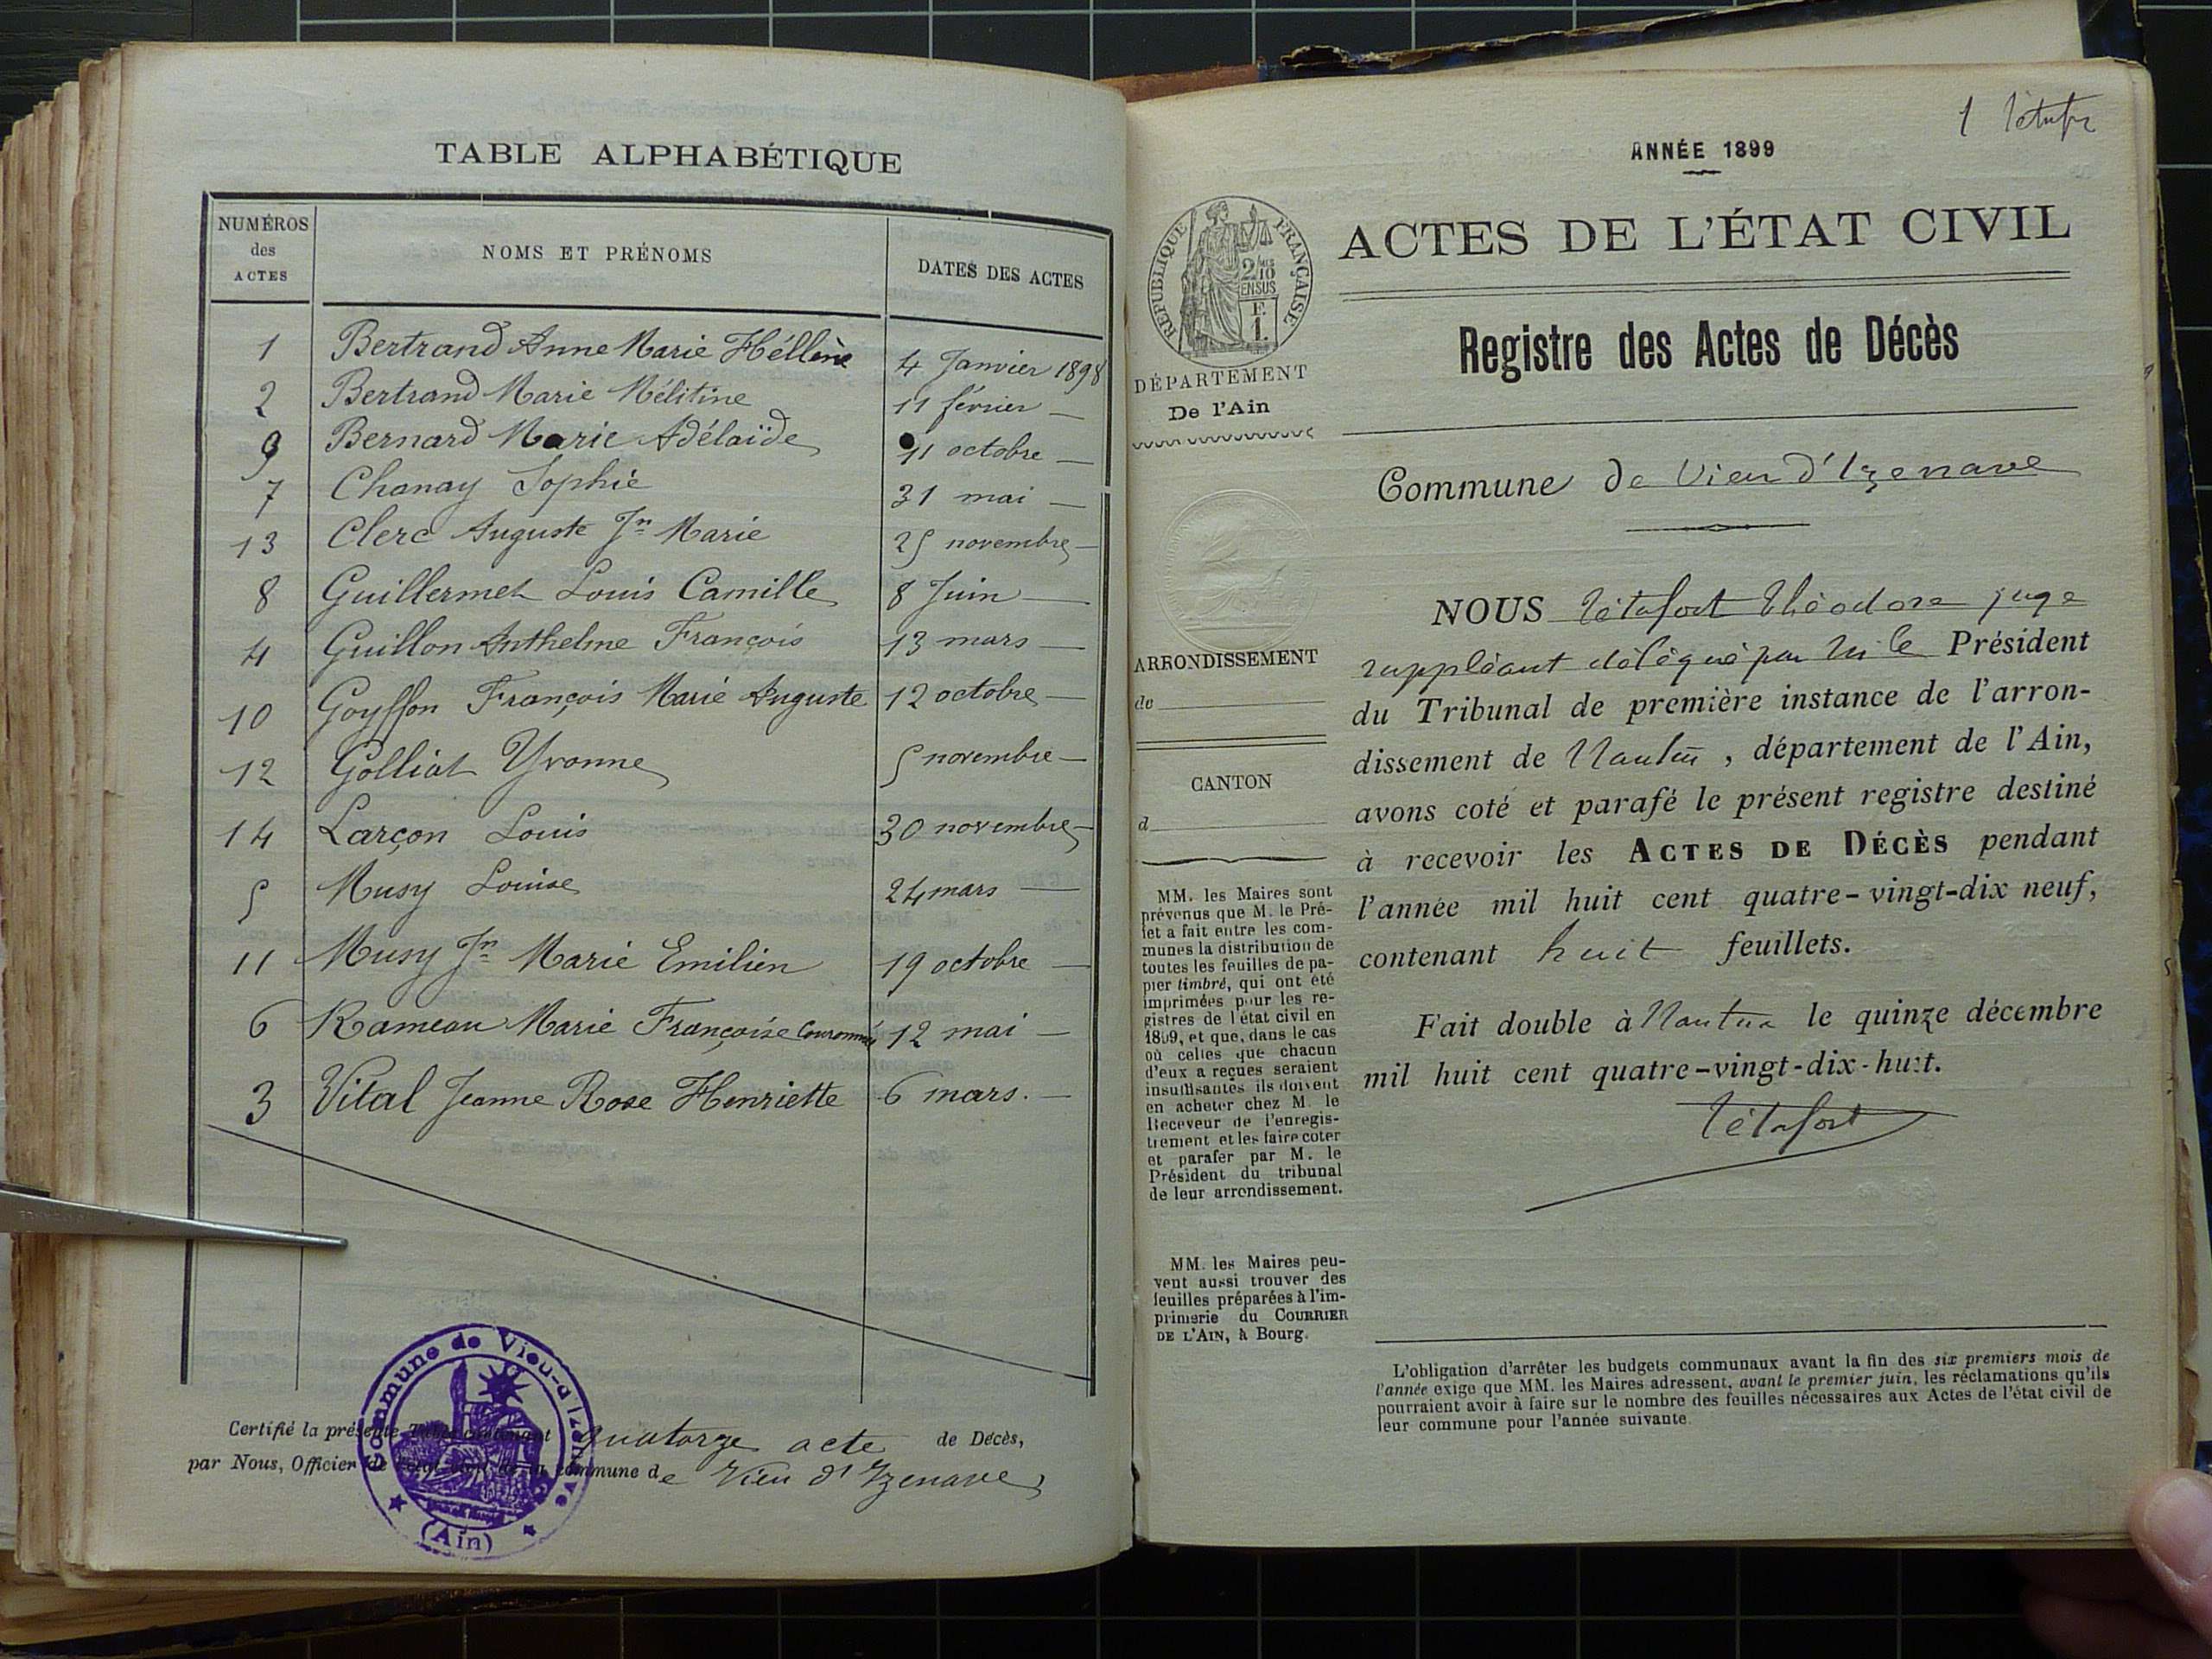 TABLE ALPHABÉTIQUE
NUMÉROS des ACTES
NOMS ET PRÉNOMS
DATES DES ACTES
1 Bertrand Anne Marie Héllène 4 Janvier 1898
2 Bertrand Marie Mélitine 11 février —
9 Bernard Marie Adélaïde 11 octobre —
7 Chanay Sophie 31 mai —
13 Clerc Auguste Jn Marie 25 novembre —
8 Guillermet Louis Camille 8 Juin —
4 Guillon Anthelme François 13 mars —
10 Goyffon François Marie Auguste 12 octobre —
12 Golliat Yvonne 5 novembre —
14 Larçon Louis 30 novembre —
5 Musy Louise 24 mars —
11 Musy Jn Marie Emilien 19 octobre —
6 Rameau Marie Françoise 12 mai —
3 Vital Jeanne Rose Henriette 6 mars. —
Certifié la présente Table contenant Quatorze acte de Décès,
par Nous, Officier de l'état-civil de la commune de Vieu d'Izenave
Commune de Vieu-d'Izenave
(Ain)
1
ANNÉE 1899
RÉPUBLIQUE FRANÇAISE
2/10
EN SUS
F.
1.
ACTES DE L'ÉTAT CIVIL
Registre des Actes de Décès
DÉPARTEMENT
De l'Ain
Commune de Vieu d'Izenave
ARRONDISSEMENT
de
CANTON
d
MM. les Maires sont
prévenus que M. le Pré-
fet a fait entre les com-
munes la distribution de
toutes les feuilles de pa-
pier timbré, qui ont été
imprimées pour les re-
gistres de l'état civil en
1899, et que, dans le cas
où celles que chacun
d'eux a reçues seraient
insuffisantes ils doivent
en acheter chez M. le
Receveur de l'enregis-
trement et les faire coter
et parafer par M. le
Président du tribunal
de leur arrondissement.
MM. les Maires peu-
vent aussi trouver des
feuilles préparées à l'im-
primerie du COURRIER
DE L'AIN, à Bourg.
NOUS Tétafort Théodore juge
suppléant délégué par M. le Président
du Tribunal de première instance de l'arron-
dissement de Nantua, département de l'Ain,
avons coté et parafé le présent registre destiné
à recevoir les ACTES DE DÉCÈS pendant
l'année mil huit cent quatre-vingt-dix neuf,
contenant huit feuillets.
Fait double à Nantua le quinze décembre
mil huit cent quatre-vingt-dix-huit.
Tétafort
L'obligation d'arrêter les budgets communaux avant la fin des six premiers mois de
l'année exige que MM. les Maires adressent, avant le premier juin, les réclamations qu'ils
pourraient avoir à faire sur le nombre des feuilles nécessaires aux Actes de l'état civil de
leur commune pour l'année suivante.